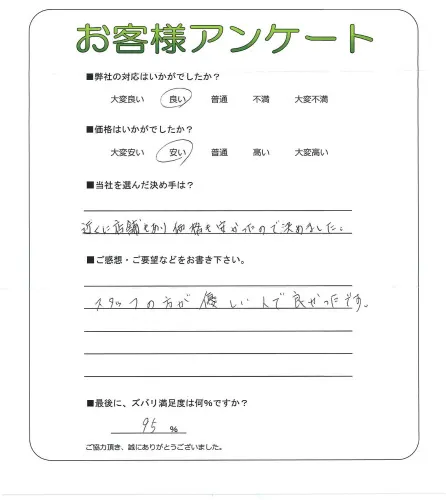 お客様アンケート
■弊社の対応はいかがでしたか？
大変良い 良い 普通 不満 大変不満
■価格はいかがでしたか？
大変安い 安い 普通 高い 大変高い
■当社を選んだ決め手は？
近くに店舗もあり価格も安かったので決めました。
■ご感想・ご要望などをお書き下さい。
スタッフの方が優しい人で良かったです。
■最後に、ズバリ満足度は何％ですか？
95 ％
ご協力頂き、誠にありがとうございました。